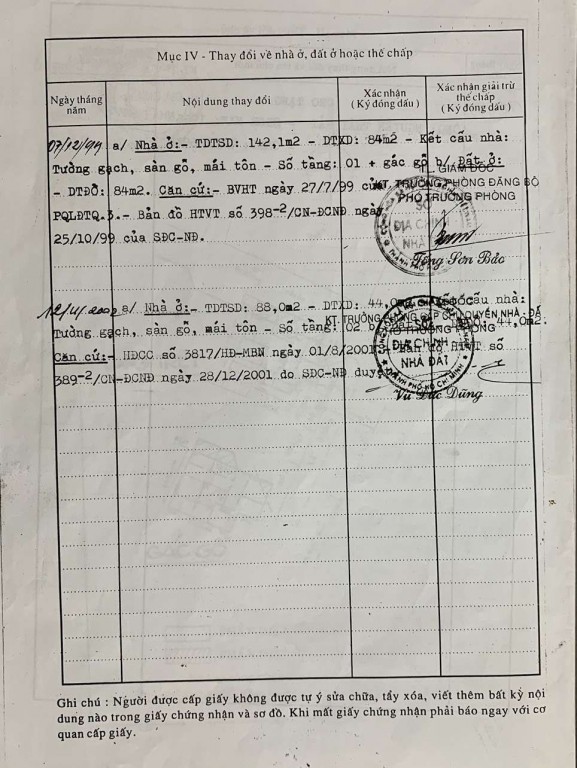 Mục IV - Thay đổi về nhà ở, đất ở hoặc thế chấp
Ngày tháng năm
Nội dung thay đổi
Xác nhận ( Ký đóng dấu )
Xác nhận giải trừ thế chấp ( Ký đóng dấu )
07/12/99 a/ Nhà ở:- TDTSD: 142,1m2 - DTXD: 84m2 - Kết cấu nhà:
Tường gạch, sàn gỗ, mái tôn - Số tầng: 01 + gác gỗ b/ Đất ở:
GIÁM ĐỐC
- DTĐỞ: 84m2. Căn cứ:- BVHT ngày 27/7/99 của
KT. TRƯỞNG PHÒNG ĐĂNG BỘ
PHÓ TRƯỞNG PHÒNG
PQLĐTQ.3.- Bản đồ HTVT số 398-2/CN-ĐCNĐ ngày
25/10/99 của SĐC-NĐ.
SỞ
ĐỊA CHÍNH
NHÀ ĐẤT
Tống Sơn Bắc
a/ Nhà ở:- TDTSD: 88,0m2 - DTXD: 44,0m2 cấu nhà:
GIÁM ĐỐC
KT. TRƯỞNG PHÒNG CẤP CHỦ QUYỀN NHÀ - ĐẤT
PHÓ TRƯỞNG PHÒNG
Tường gạch, sàn gỗ, mái tôn - Số tầng: 02 b/ 44,0m2.
Căn cứ:- HĐCC số 3817/HĐ-MBN ngày 01/8/2001.- Bản đồ HTVT số
389-2/CN-ĐCNĐ ngày 28/12/2001 do SĐC-NĐ duyệt.
ĐỊA CHÍNH
NHÀ ĐẤT
THÀNH PHỐ HỒ CHÍ MINH
Vũ Đức Dũng
Ghi chú : Người được cấp giấy không được tự ý sửa chữa, tẩy xóa, viết thêm bất kỳ nội
dung nào trong giấy chứng nhận và sơ đồ. Khi mất giấy chứng nhận phải báo ngay với cơ
quan cấp giấy.